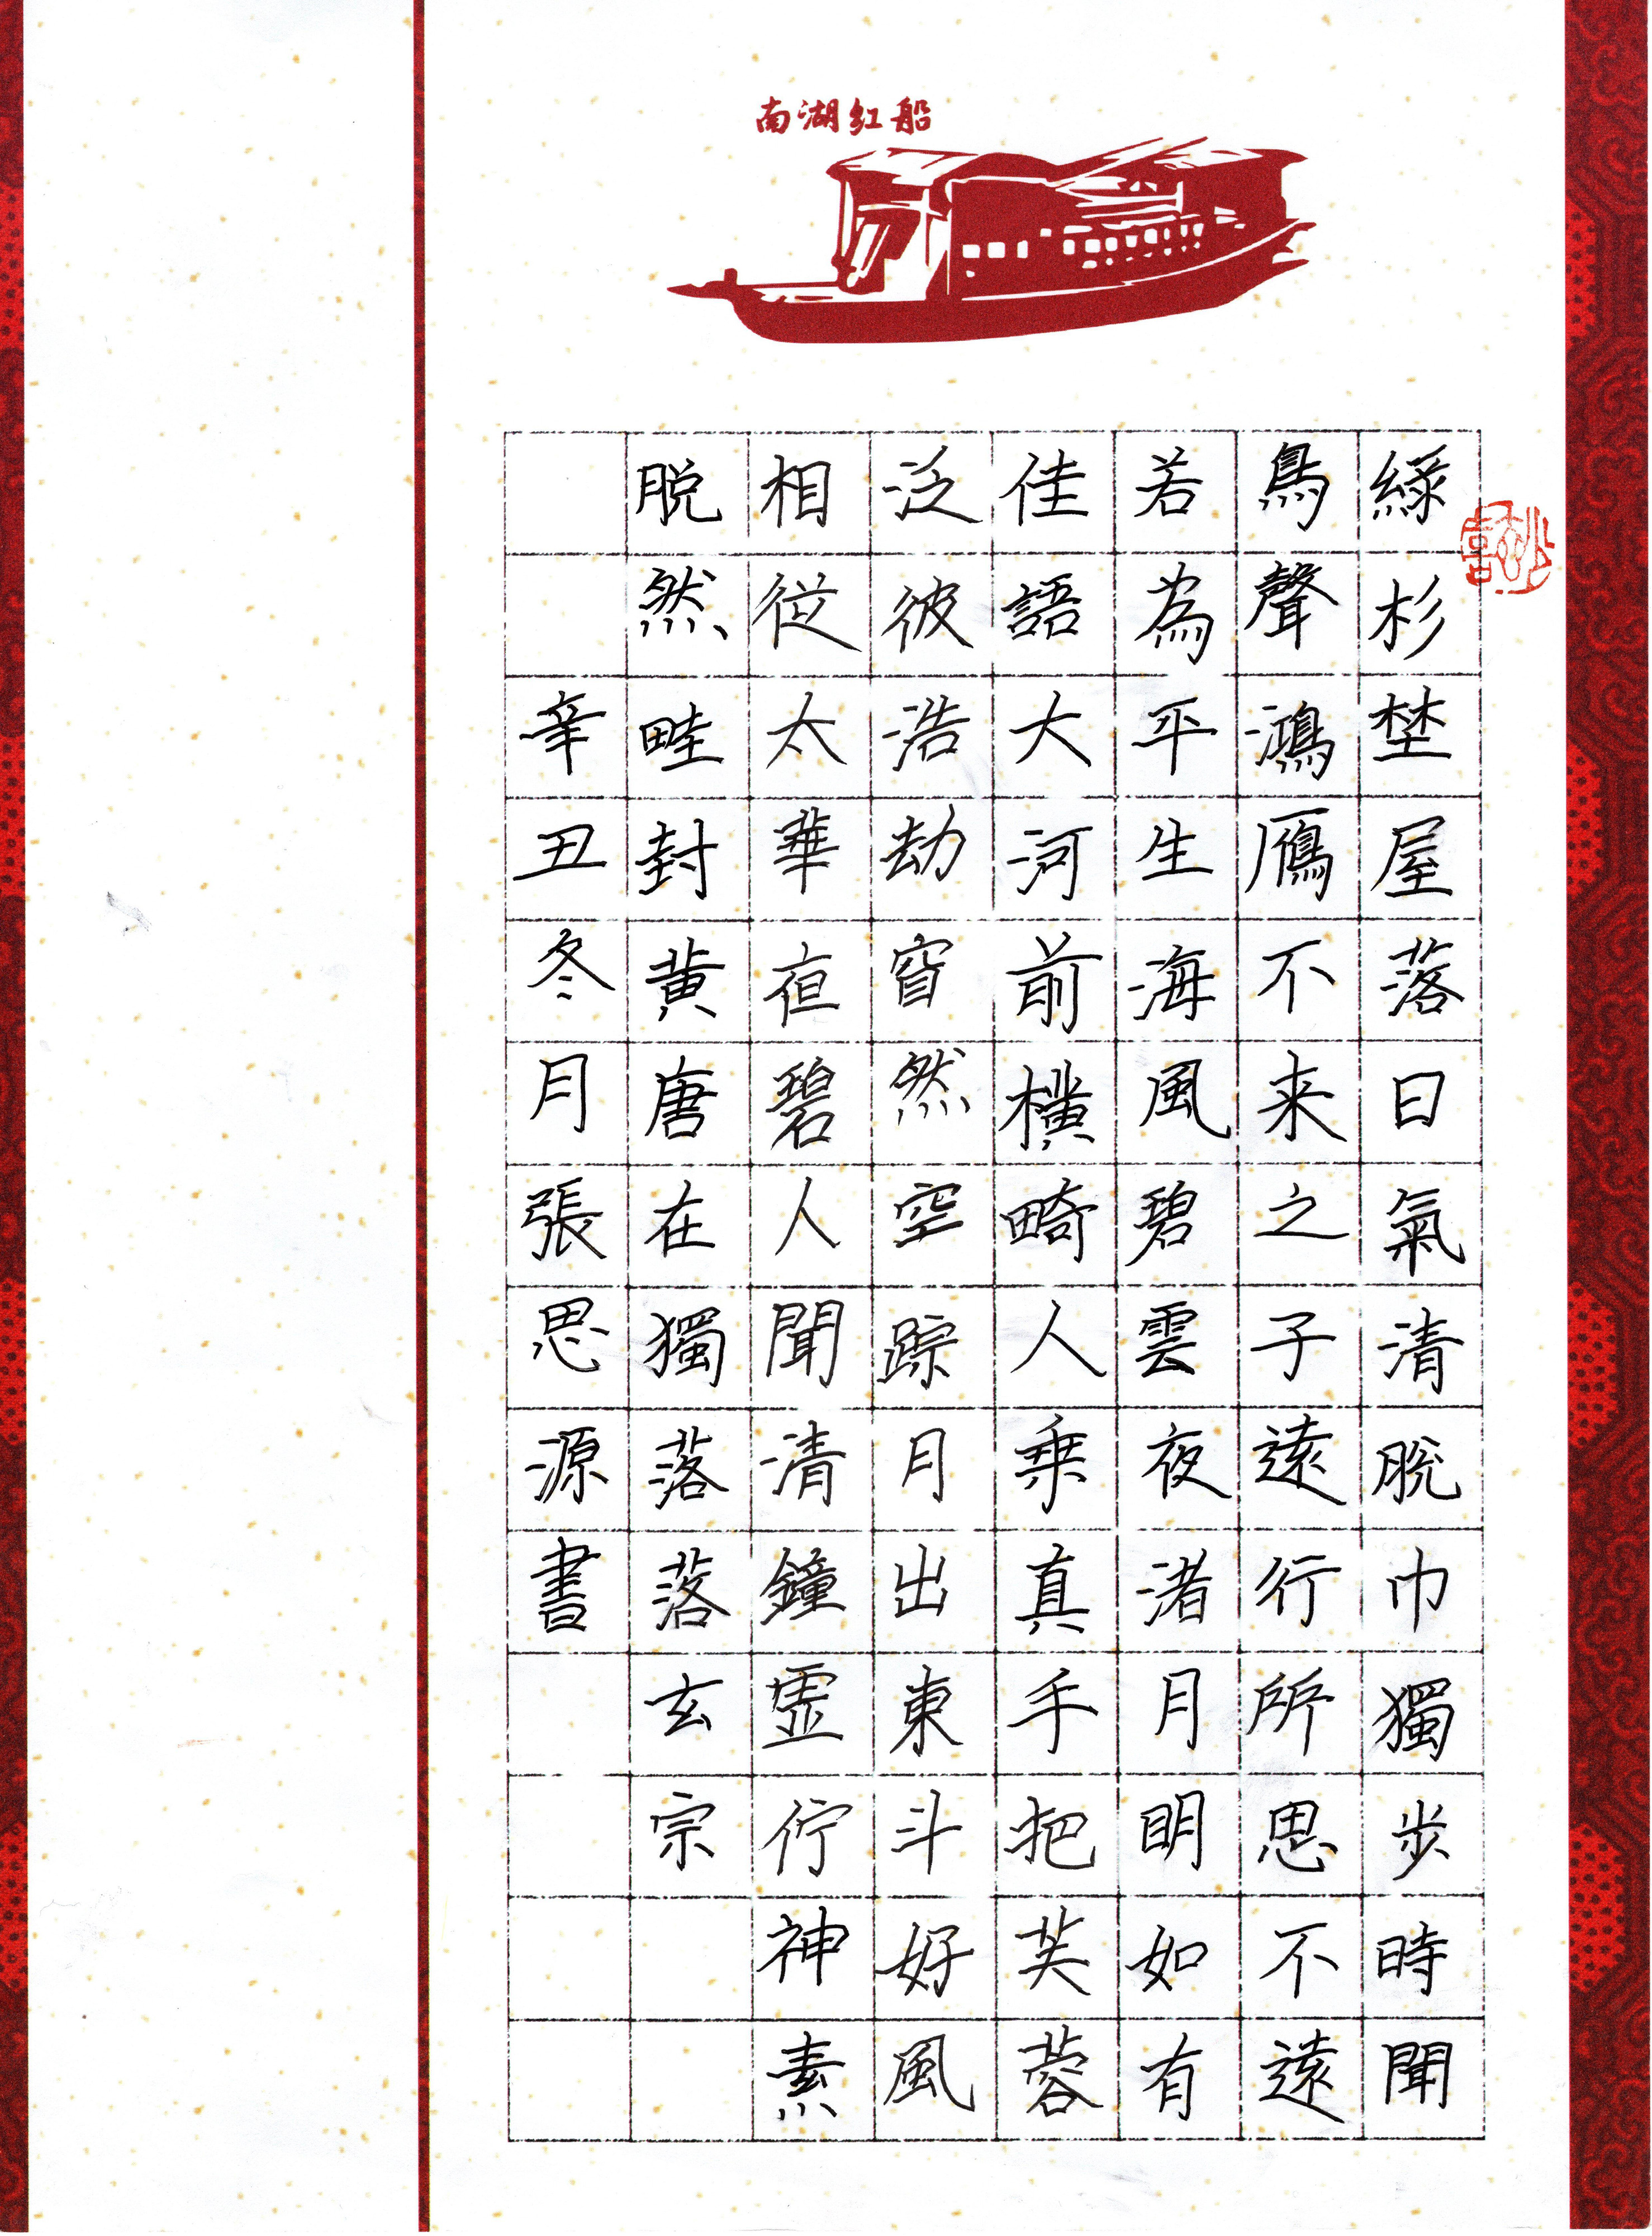 南湖红船
綠杉埜屋落日氣清脫巾獨步時聞
鳥聲鴻鴈不来之子遠行所思不遠
若為平生海風碧雲夜渚月明如有
佳語大河前橫畸人乗真手把芙蓉
泛彼浩劫窅然空踪月出東斗好風
相從太華夜碧人聞清鐘虛佇神素
脱然畦封黄唐在獨落落玄宗
辛丑冬月張思源書